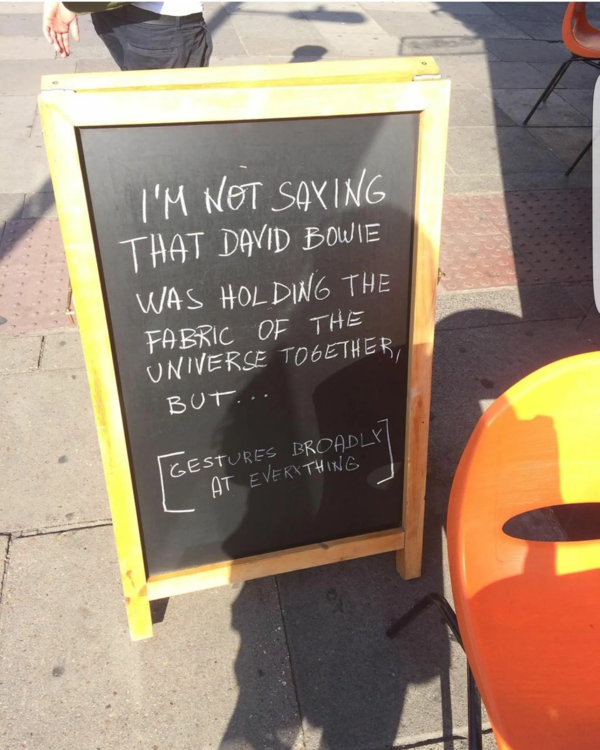 I'M NOT SAYING
THAT DAVID BOWIE
WAS HOLDING THE
FABRIC OF THE
UNIVERSE TOGETHER,
BUT...
[GESTURES BROADLY
AT EVERYTHING]